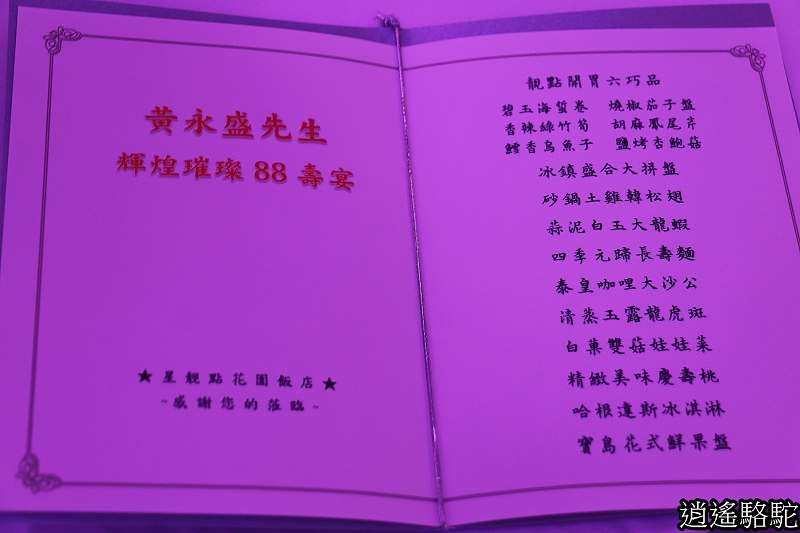 黃永盛先生
輝煌璀璨 88 壽宴
★星靚點花園飯店★
~感謝您的蒞臨~
靚點開胃六巧品
碧玉海蜇卷 燒椒茄子盤
香辣綠竹筍 胡麻鳳尾芹
鱈香烏魚子 鹽烤杏鮑菇
冰鎮盛合大拼盤
砂鍋土雞韓松翅
蒜泥白玉大龍蝦
四季元蹄長壽麵
泰皇咖哩大沙公
清蒸玉露龍虎斑
白菓雙菇娃娃菜
精緻美味慶壽桃
哈根達斯冰淇淋
寶島花式鮮果盤
逍遙駱駝